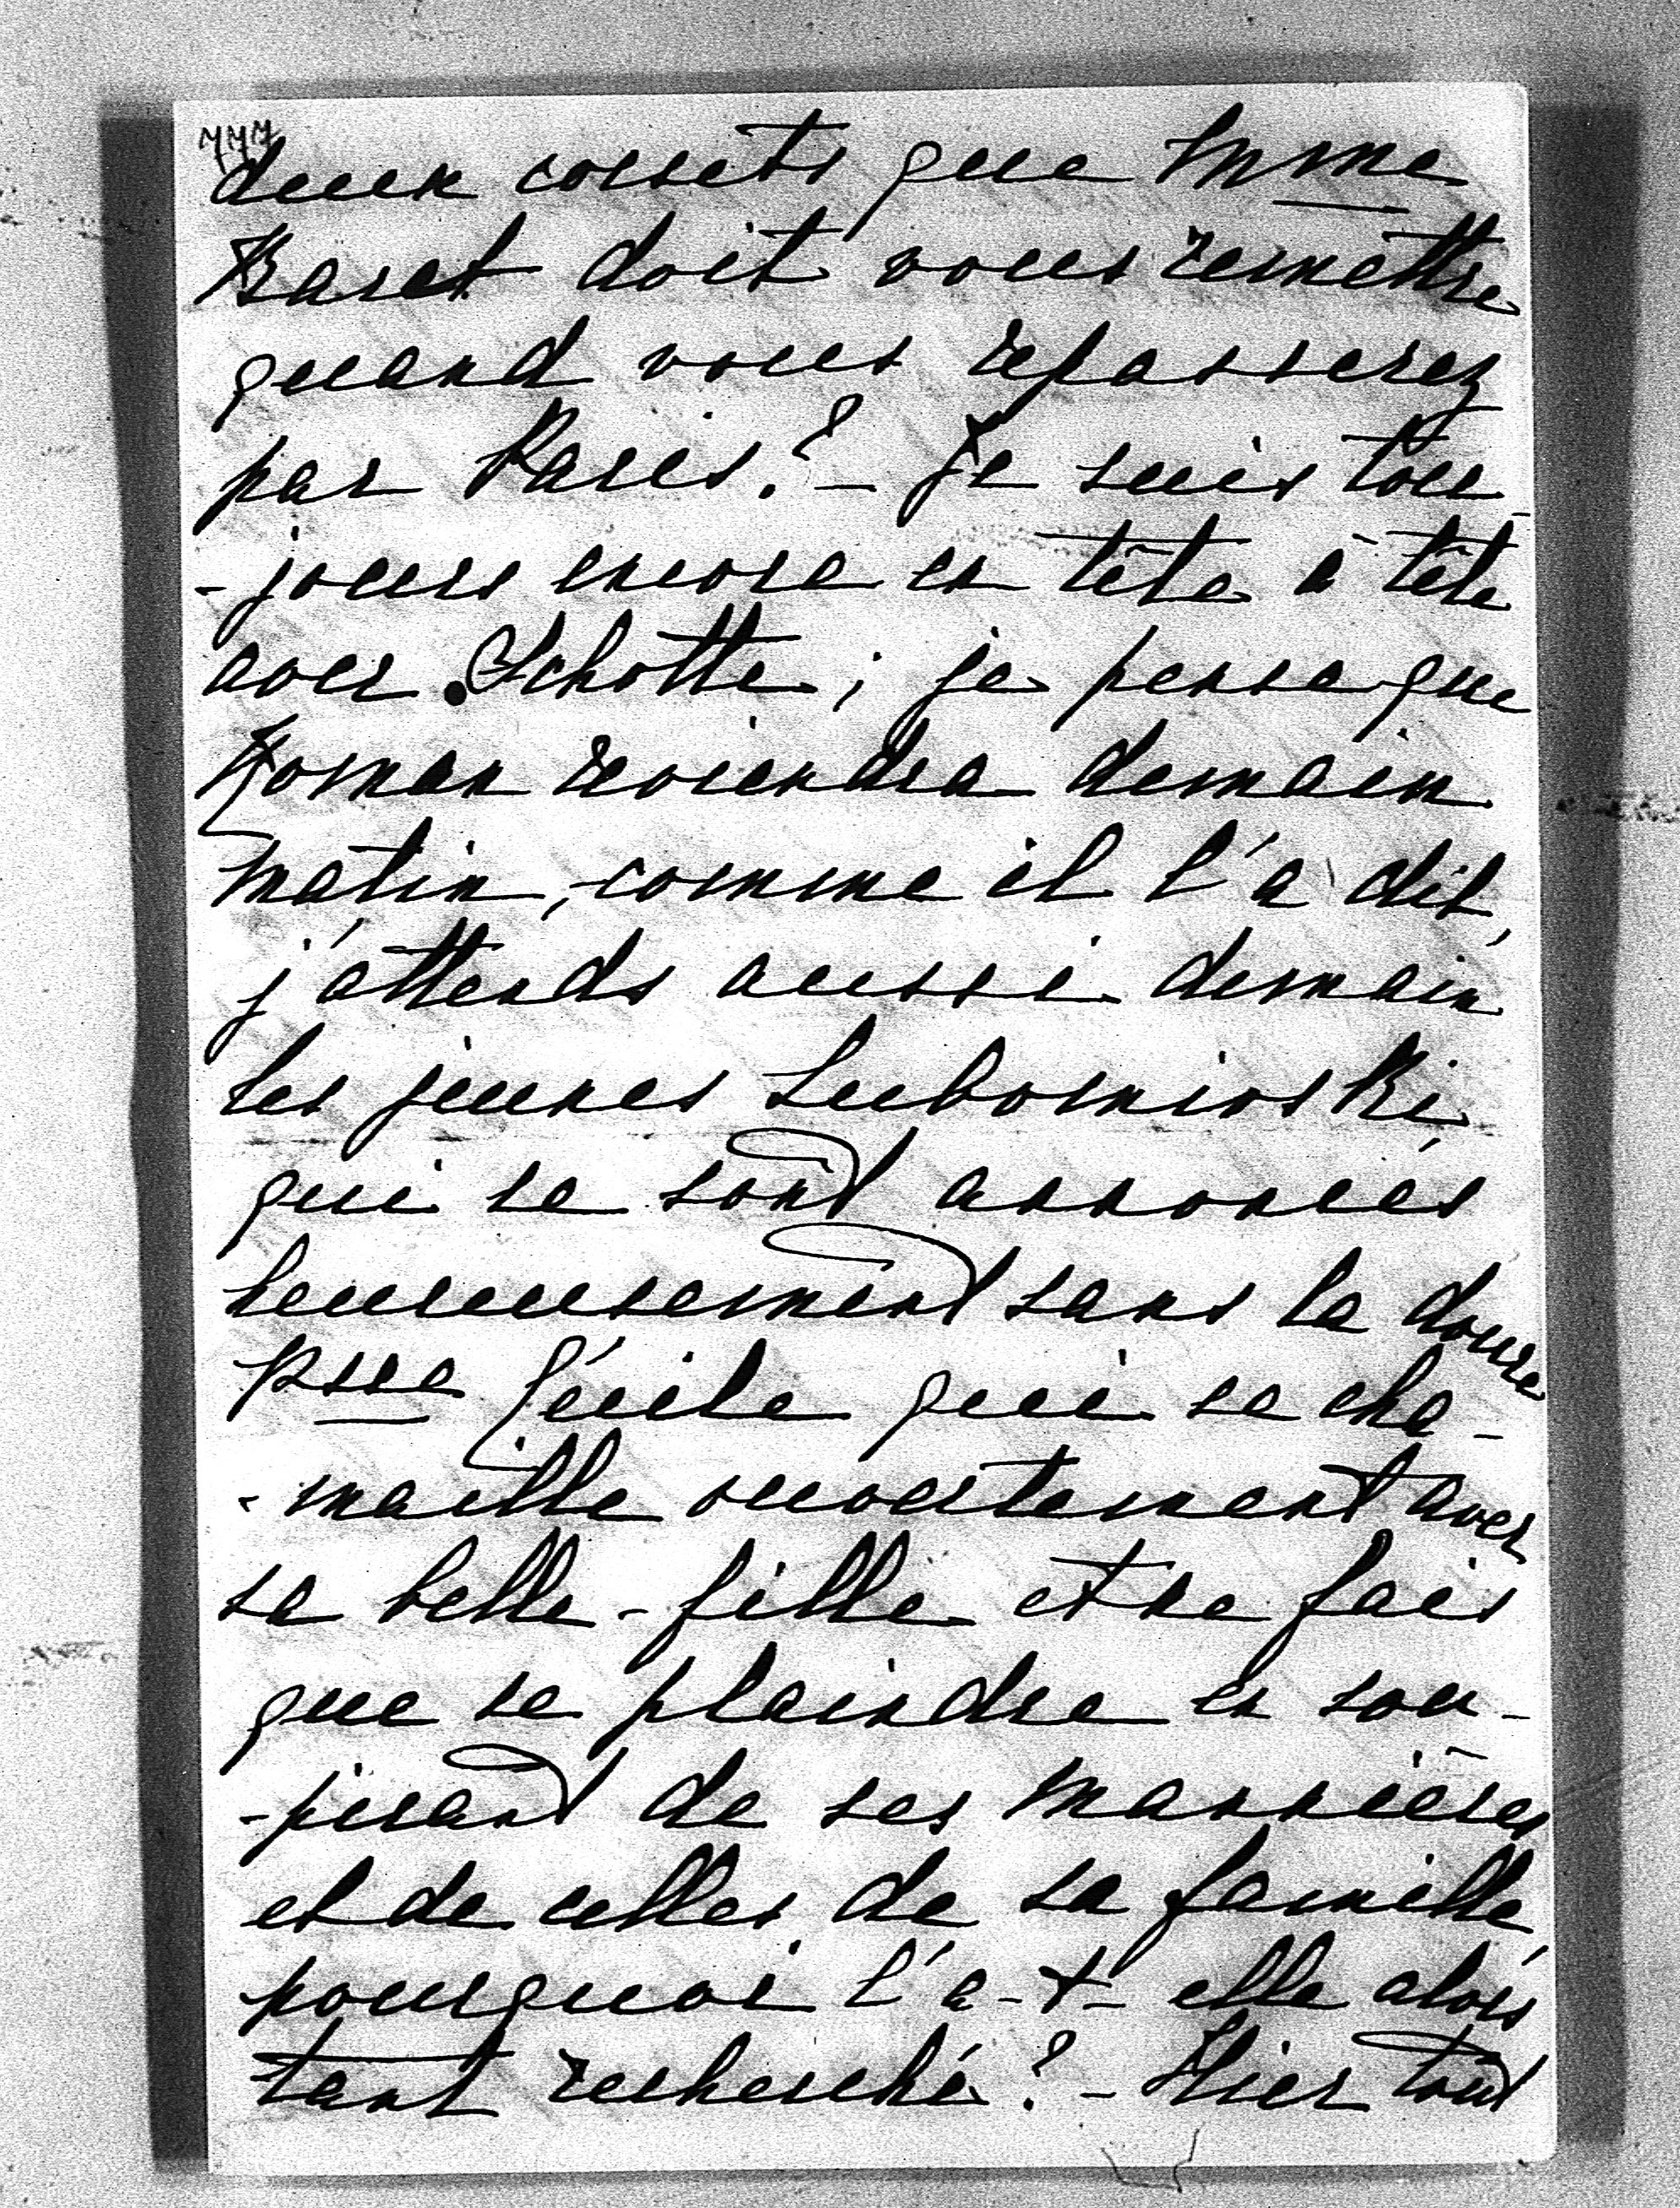 777
deux corsets que Mme
Baret doit vous remettre
quand vous repasserez
par Paris. ? – Je suis tou-
-jours encore en tête à tête
avec Schotte ; je pense que
Roman reviendra demain
matin, comme il l'a dit,
j'attends aussi demain
les jeunes Lubomirski
qui se sont annoncés
heureusement sans la douce
Psse Cécile qui se cha-
-maille ouvertement avec
sa belle-fille et ne fais
que se plaindre en sou-
-pirant de ses mannières
et de celles de sa famille,
pourquoi l'a-t-elle alors
tant recherché ? – Hier tout